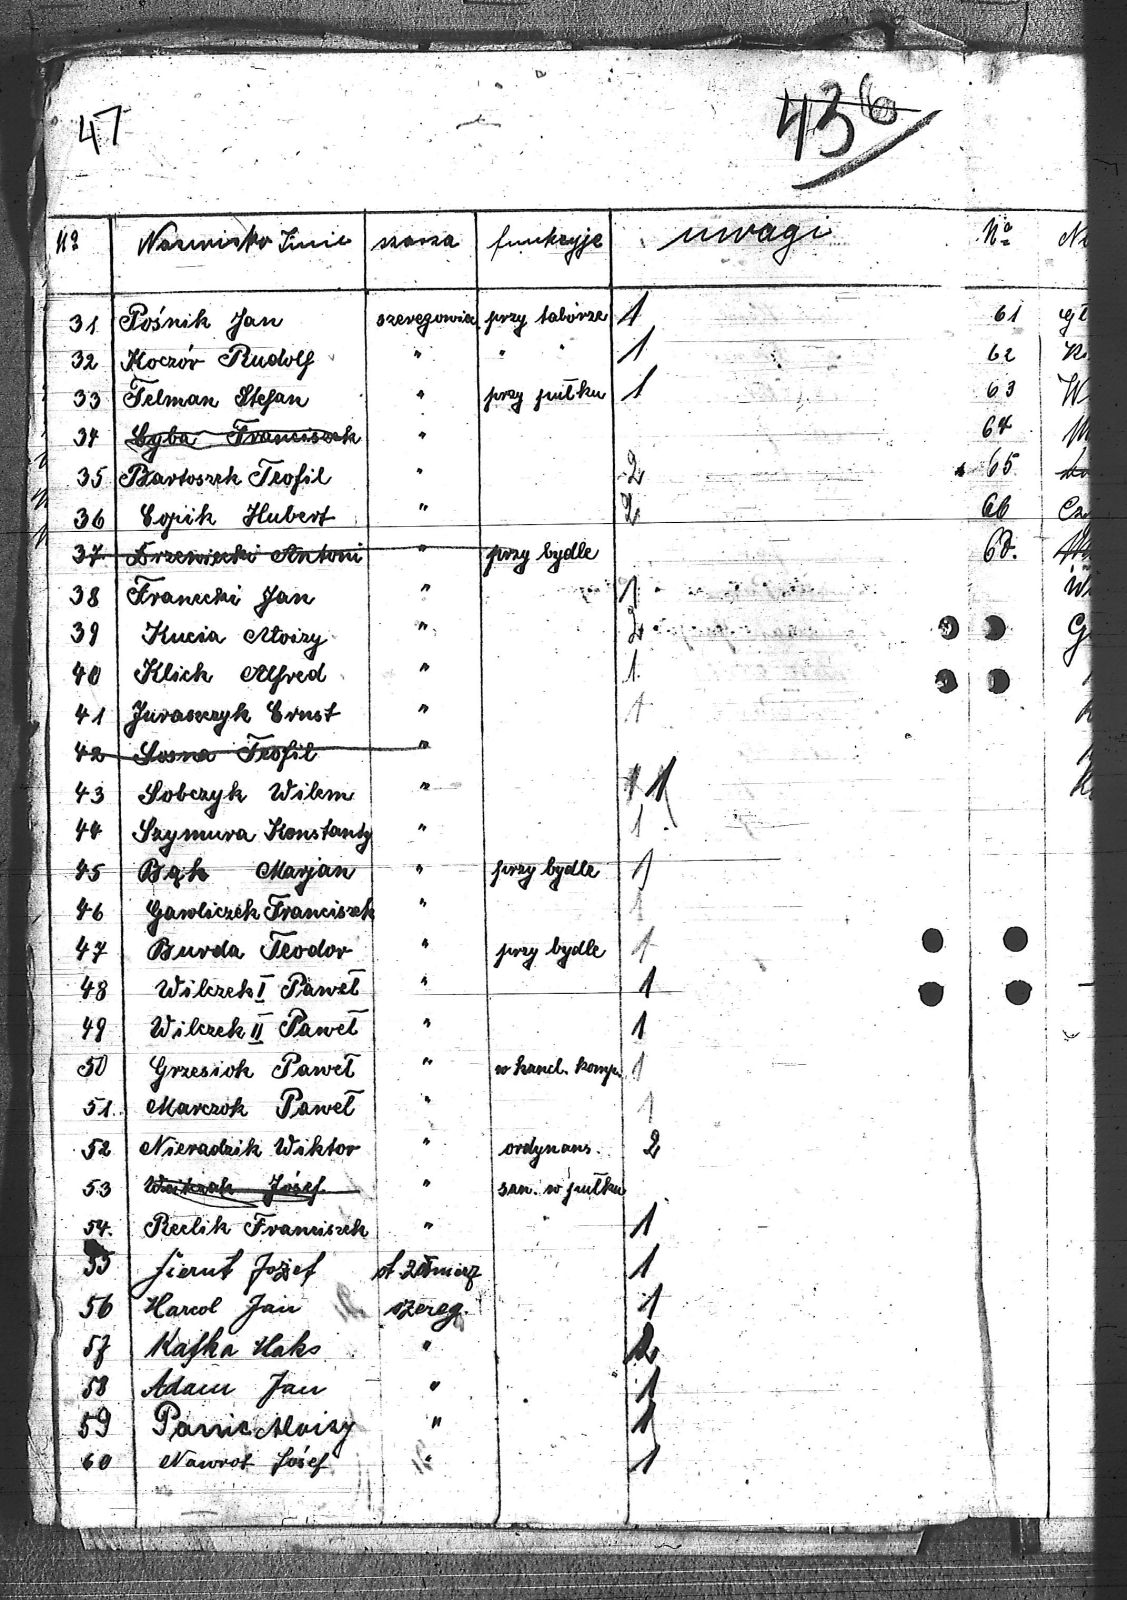 47
436
No Nazwisko Imię szarża funkcyje uwagi No
31 Pośnik Jan szeregowiec przy taborze 1 61
32 Koczór Rudolf " " " 1 62
33 Felman Stefan " przy pułku 1 63 W
34 Cyba Franciszek " 64
35 Bartoszek Teofil " 2 65
36 Hubert " 2 66
37 Brzewiecki Antoni " przy bydle
38 Franecki Jan " 1
39 Kucia Aloizy " 2
40 Klich Alfred " 1
41 Juraszczyk Ernst " 1
42 Sosna Teofil "
43 Sobczyk Wilem " 1 1
44 Szymura Konstanty " 1
45 Bąk Marjan " przy bydle 1
46 Gawliczek Franciszek " 1
47 Burda Teodor " przy bydle 1
48 Wilczek I Paweł " 1
49 Wilczek II Paweł " 1
50 Grzesiok Paweł " w kancl. komp. 1
51. Marczok Paweł " 1
52 Nieradzik Wiktor " ordynans. 2
53 Józef " san. w pułku
54. Reclik Franciszek " 1
55 Józef st. żołnierz 1
56 Harcol Jan szereg. 1
57 Kafka Haks " 2
58 Adam Jan " 1
59 Panic Aloizy " 1
60 Nawrot Józef " 1